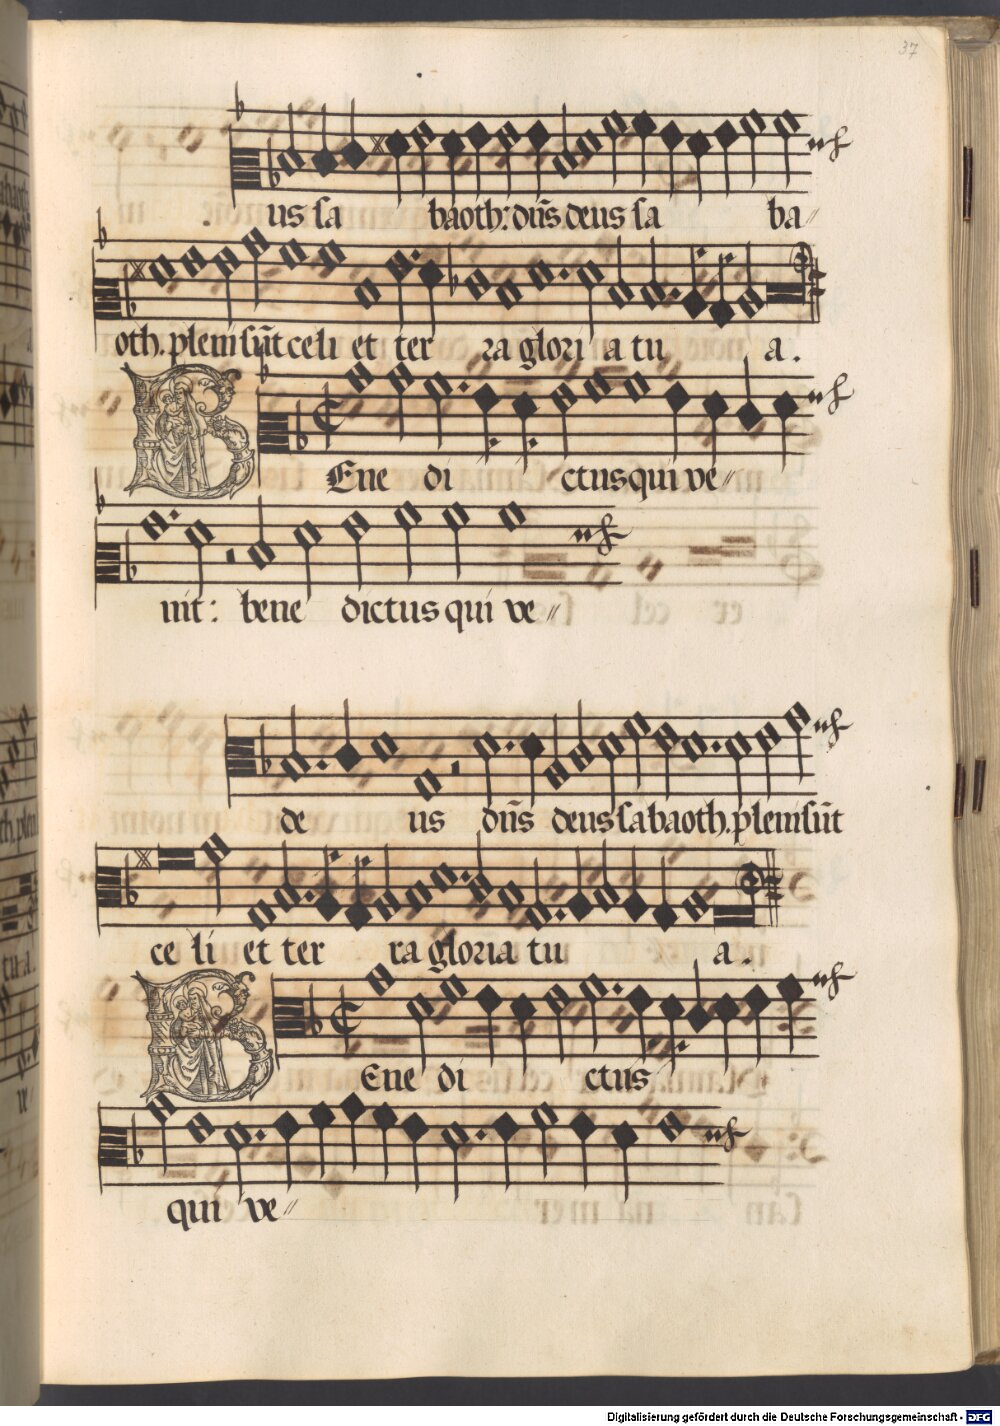 37
us sa baoth: dñs deus sa ba〃
oth. pleni sūt celi et ter ra glori a tu a.
BEne di ctus qui ve〃
nit: bene dictus qui ve〃
de us dñs deus sabaoth. pleni sūt
ce li et ter ra gloria tu a.
BEne di ctus
qui ve〃
Digitalisierung gefördert durch die Deutsche Forschungsgemeinschaft - DFG